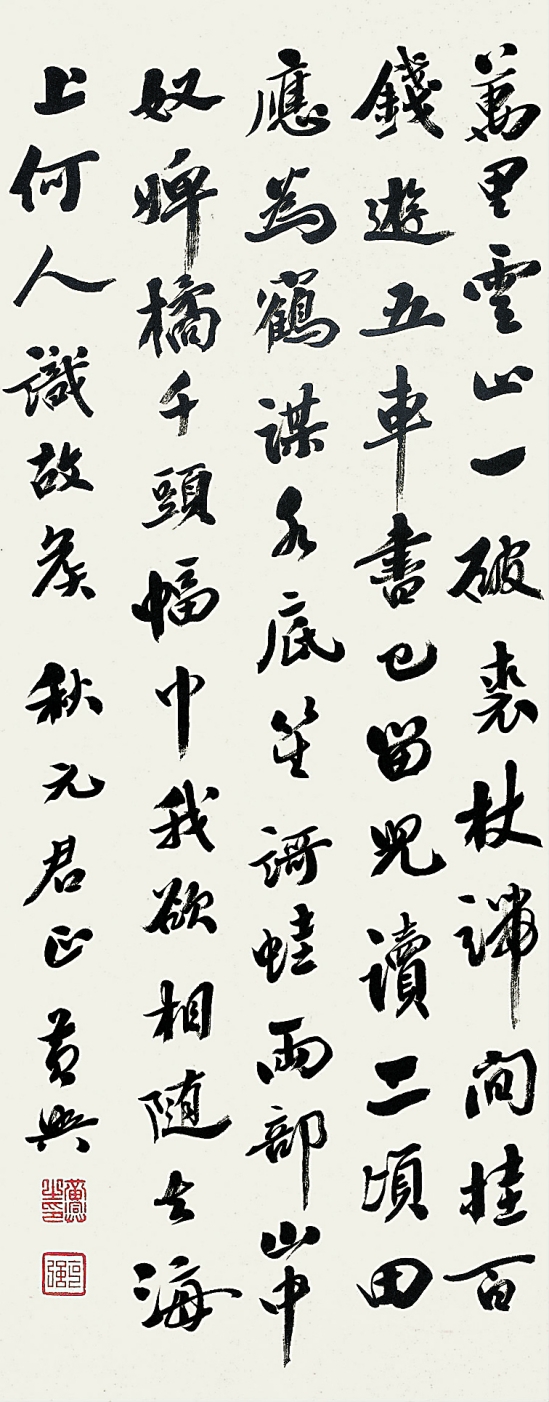 萬里雲山一破裘杖端閒挂百
錢遊五車書已留兒讀二頃田
應為鶴謀水底笙謌蛙兩部山中
奴婢橘千頭幅巾我欲相隨去海
上何人識故矦 秋元君正 黃興
黃興之印
克強